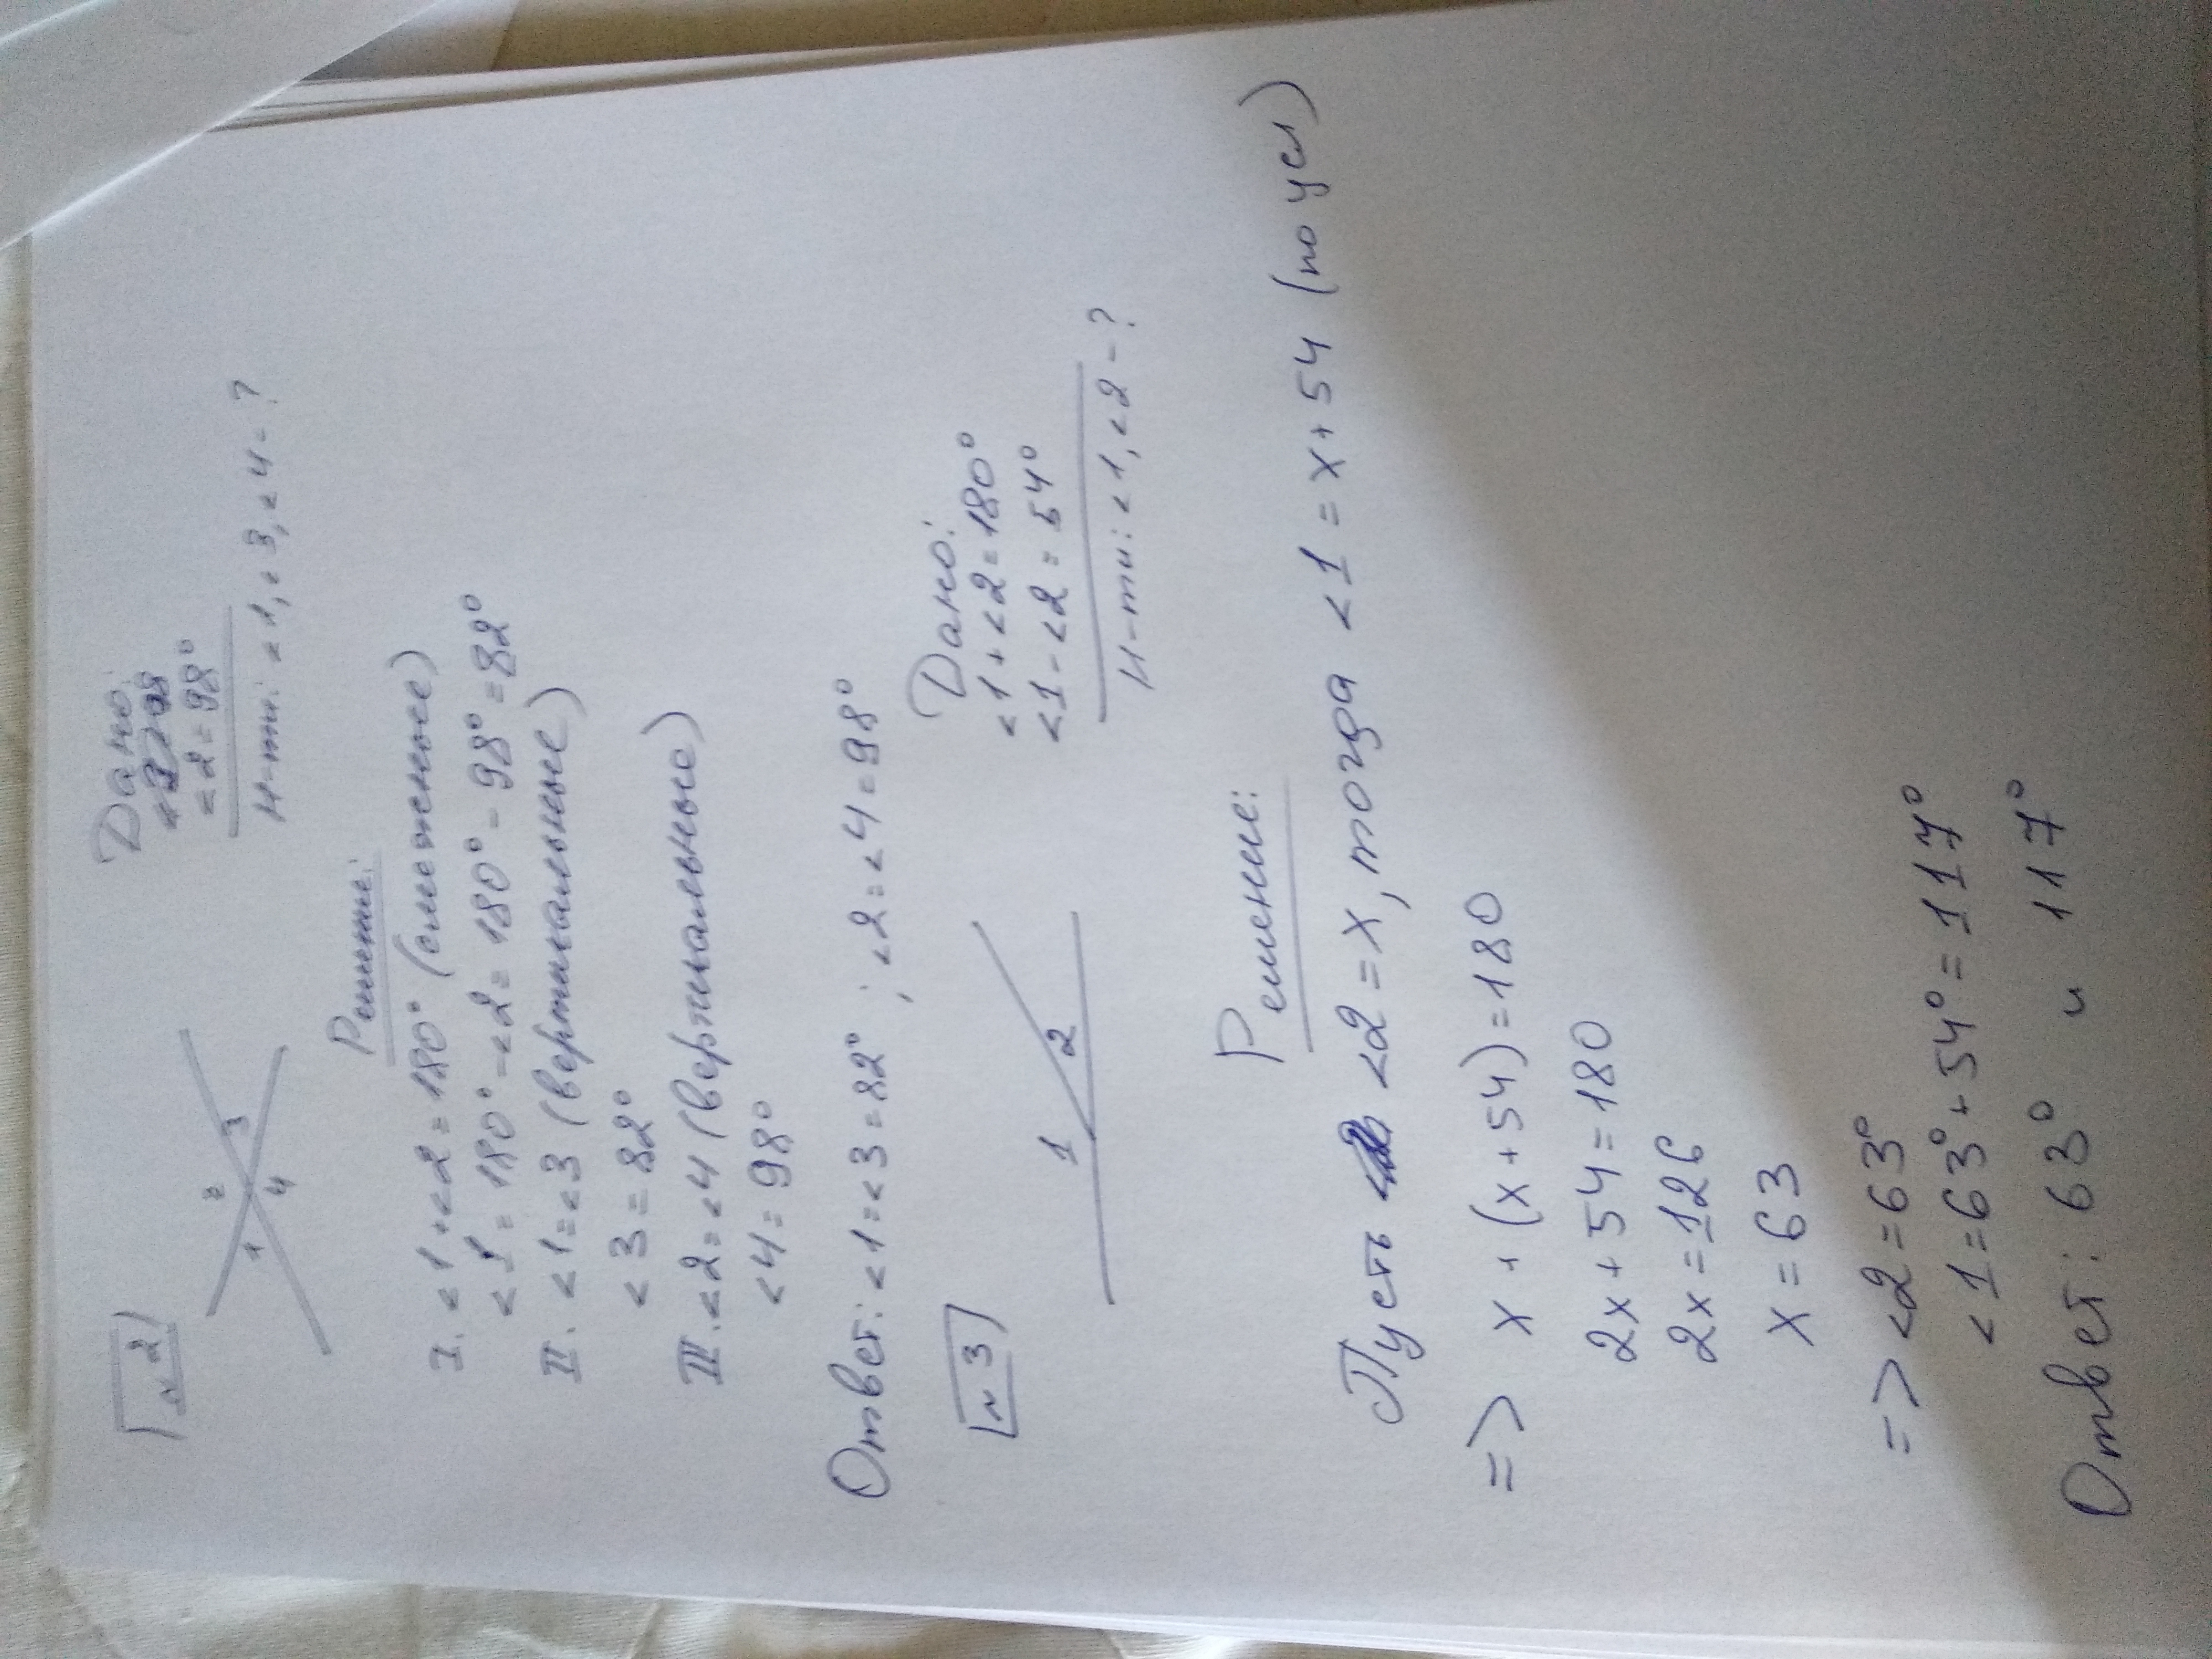 №2
Дано:
<2=98°
Н-ти: <1, <3, <4-?
1
2
3
4
Решение:
I. <1+<2=180° (смежные)
<1=180°-<2=180°-98°=82°
II. <1=<3 (вертикальные)
<3=82°
III. <2=<4 (вертикальные)
<4=98°
Ответ: <1=<3=82° ; <2=<4=98°
№3
1
2
Дано:
<1+<2=180°
<1-<2=54°
Н-ти: <1, <2-?
Решение:
Пусть <2=x, тогда <1=x+54 (по усл)
=> x+(x+54)=180
2x+54=180
2x=126
x=63
=> <2=63°
<1=63°+54°=117°
Ответ: 63° и 117°